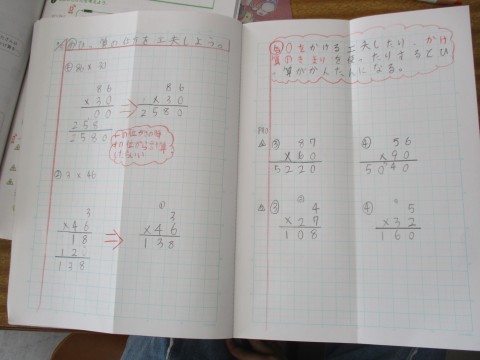 ひっ算のしかたを工夫しよう。
① 86×30
86
×30
00
258
2580
86
×30
2580
② 3×46
3
×46
18
12
138
3
×46
138
0をかける
工夫したり、かけ
算のきまりを使ったりするとひっ
算がかんたんになる。
③ 87
×60
5220
④ 56
×90
5040
③ 4
×27
108
④ 5
×32
160